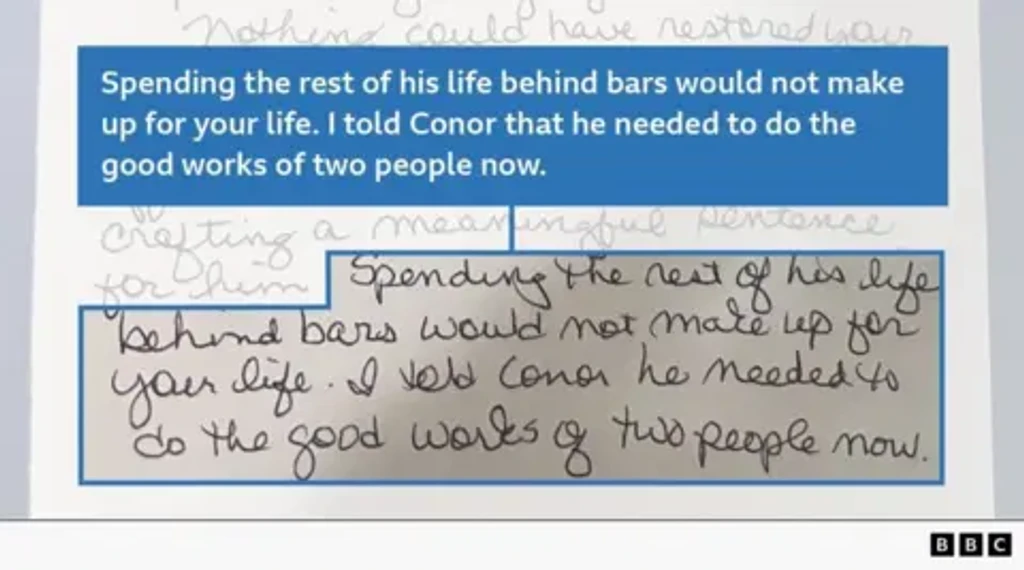 Nothing could have restored your
Spending the rest of his life behind bars would not make
up for your life. I told Conor that he needed to do the
good works of two people now.
crafting a meaningful sentence
for him
Spending the rest of his life
behind bars would not make up for
your life. I told Conor he needed to
do the good works of two people now.
BBC